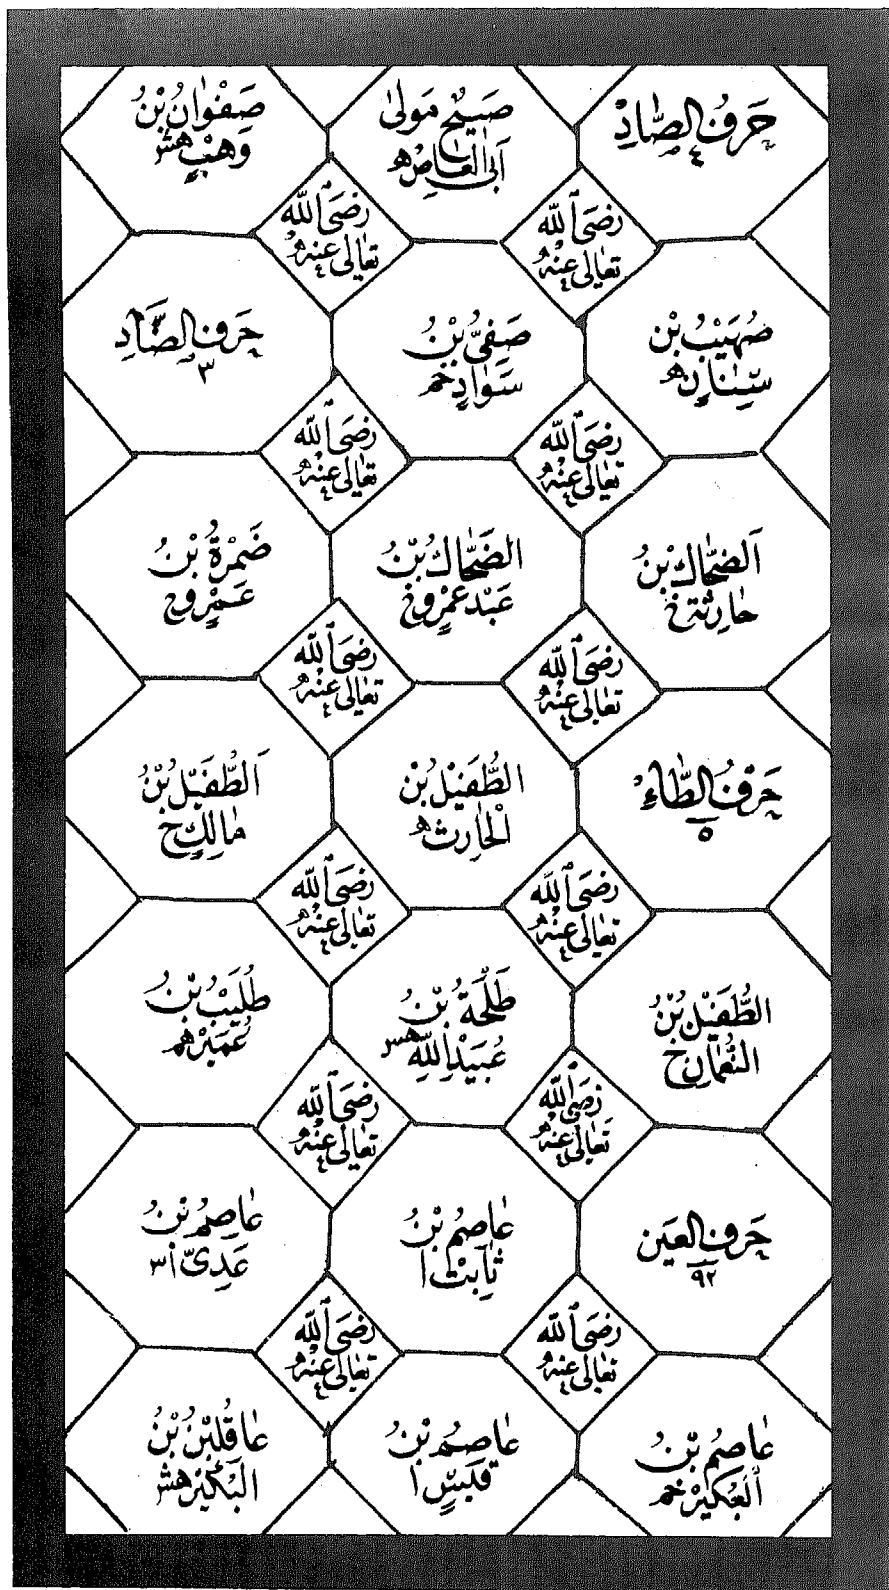 حَرْفُ الصَّادِ
٤
صَبِيحٌ مَولىٰ
اَبِى الْعَاصِ ه
صَفْوَانُ بْنُ
وَهْبٍ هش
رَضِىَ اللّٰه
تَعَالى عَنْهُ
رَضِىَ اللّٰه
تَعَالى عَنْهُ
صُهَيْبُ بْن
سِنَانٍ ه
صَفِىُّ بْنُ
سَوَادٍ خم
حَرفُ الضَّادِ
٣
رَضِىَ اللّٰه
تَعَالى عَنْهُ
رَضِىَ اللّٰه
تَعَالى عَنْهُ
اَلضَّحَّاكُ بْنُ
حَارِثَةَ خ
الضَّحَّاكُ بْنُ
عَبْدِ عَمْرٍو خ
ضَمْرَةُ بْنُ
عَمْرٍو خ
رَضِىَ اللّٰه
تَعَالى عَنْهُ
رَضِىَ اللّٰه
تَعَالى عَنْهُ
حَرْفُ الطَّاءِ
٥
الطُّفَيْلُ بْنُ
الْحَارِث ه
اَلطُّفَيْلُ بْنُ
مَالِكٍ خ
رَضِىَ اللّٰه
تَعَالى عَنْهُ
رَضِىَ اللّٰه
تَعَالى عَنْهُ
الطُّفَيْلُ بْنُ
النُّعْمَانِ خ
طَلْحَةُ بْنُ
عُبَيْدِ اللّٰهِ هس
طُلَيْبُ بْنُ
عُمَيْرٍ هم
رَضِىَ اللّٰه
تَعَالى عَنْهُ
رَضِىَ اللّٰه
تَعَالى عَنْهُ
حَرفُ العَين
٩٢
عَاصِمُ بْنُ
ثَابِتٍ ا
عَاصِمُ بْنُ
عَدِىّ ا ٣
رَضِىَ اللّٰه
تَعَالى عَنْهُ
رَضِىَ اللّٰه
تَعَالى عَنْهُ
عَاصِمُ بْنُ
الْعُكَيْرِ خم
عَاصِمُ بْنُ
قَيسٍ ا
عَاقِلُ بْنُ
الْبُكَيْرِ هش